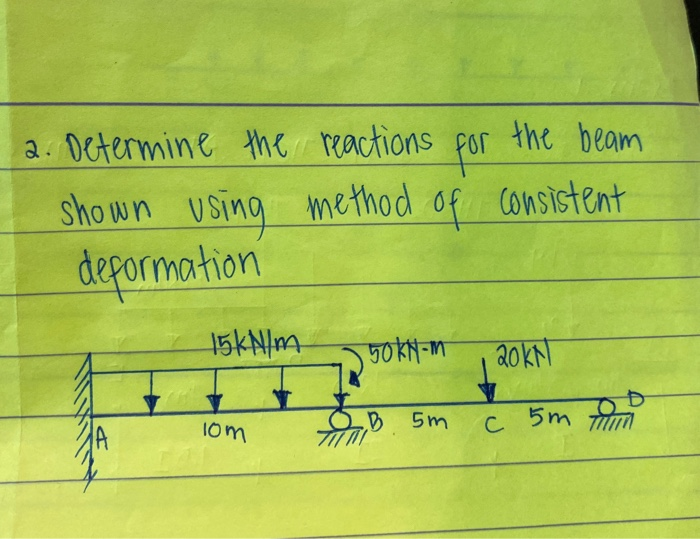 2. Determine the reactions for the beam
shown using method of consistent
deformation
15kN/m 50kN-m 20kN
A 10m B 5m C 5m D